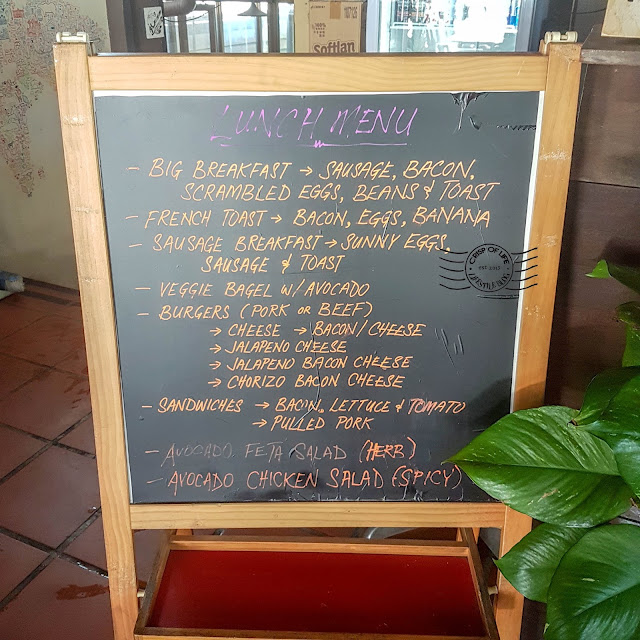 Softlan
LUNCH MENU
- BIG BREAKFAST → SAUSAGE, BACON,
SCRAMBLED EGGS, BEANS & TOAST
- FRENCH TOAST → BACON, EGGS, BANANA
- SAUSAGE BREAKFAST → SUNNY EGGS,
SAUSAGE & TOAST
CRISP OF LIFE
EST. 2012
LIFESTYLE BLOG
- VEGGIE BAGEL W/ AVOCADO
- BURGERS (PORK OR BEEF)
→ CHEESE → BACON/CHEESE
→ JALAPENO CHEESE
→ JALAPENO BACON CHEESE
→ CHORIZO BACON CHEESE
- SANDWICHES → BACON, LETTUCE & TOMATO
→ PULLED PORK
- AVOCADO FETA SALAD (HERB)
- AVOCADO CHICKEN SALAD (SPICY)